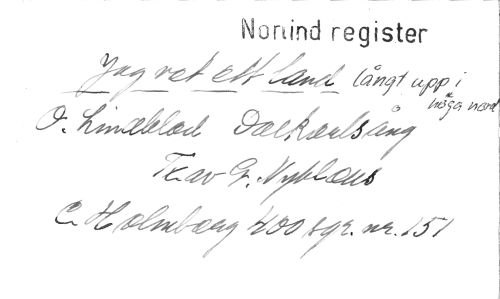 Nonind register
Jag vet ett land långt upp i
höga nord
O. Lindblad Dalkarlsång
T. av G. Nyblæus
C. Holmberg 400 sgr. nr. 151